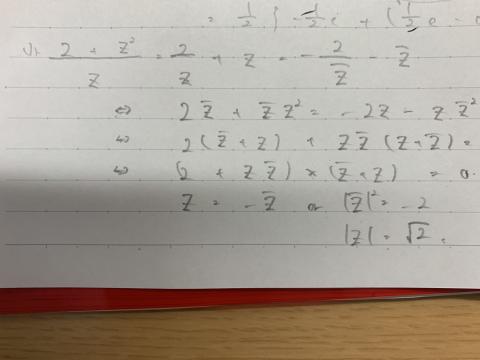 = 1/2 { -1/2 i + (1/2 e -
(2 + z²)/z = 2/z + z = -2/z̄ - z̄
⇔ 2z̄ + z̄z² = -2z - zz̄²
⇔ 2(z̄ + z) + zz̄(z + z̄) =
⇔ (2 + zz̄) × (z̄ + z) = 0.
z = -z̄ or |z̄|² = -2
|z| = √2.